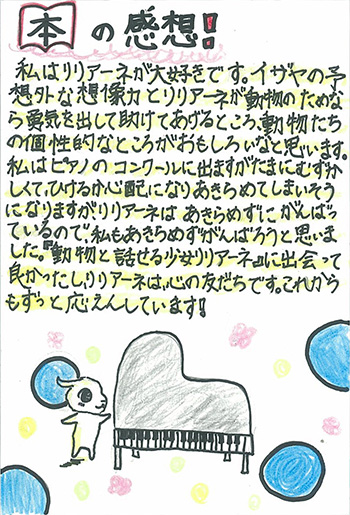 本の感想!
私はリリアーネが大好きです。イザヤの予
想外な想像力とリリアーネが動物のためな
ら勇気を出して助けてあげるところ、動物たち
の個性的なところがおもしろいなと思います。
私はピアノのコンクールに出ますがたまにむずか
しくて、ひけるか心配になりあきらめてしまいそう
になりますがリリアーネはあきらめずにがんばっ
ているので、私もあきらめずがんばろうと思いま
した。『動物と話せる少女リリアーネ』に出会って
良かったしリリアーネは、心の友だちです。これから
もずっと応えんしています!